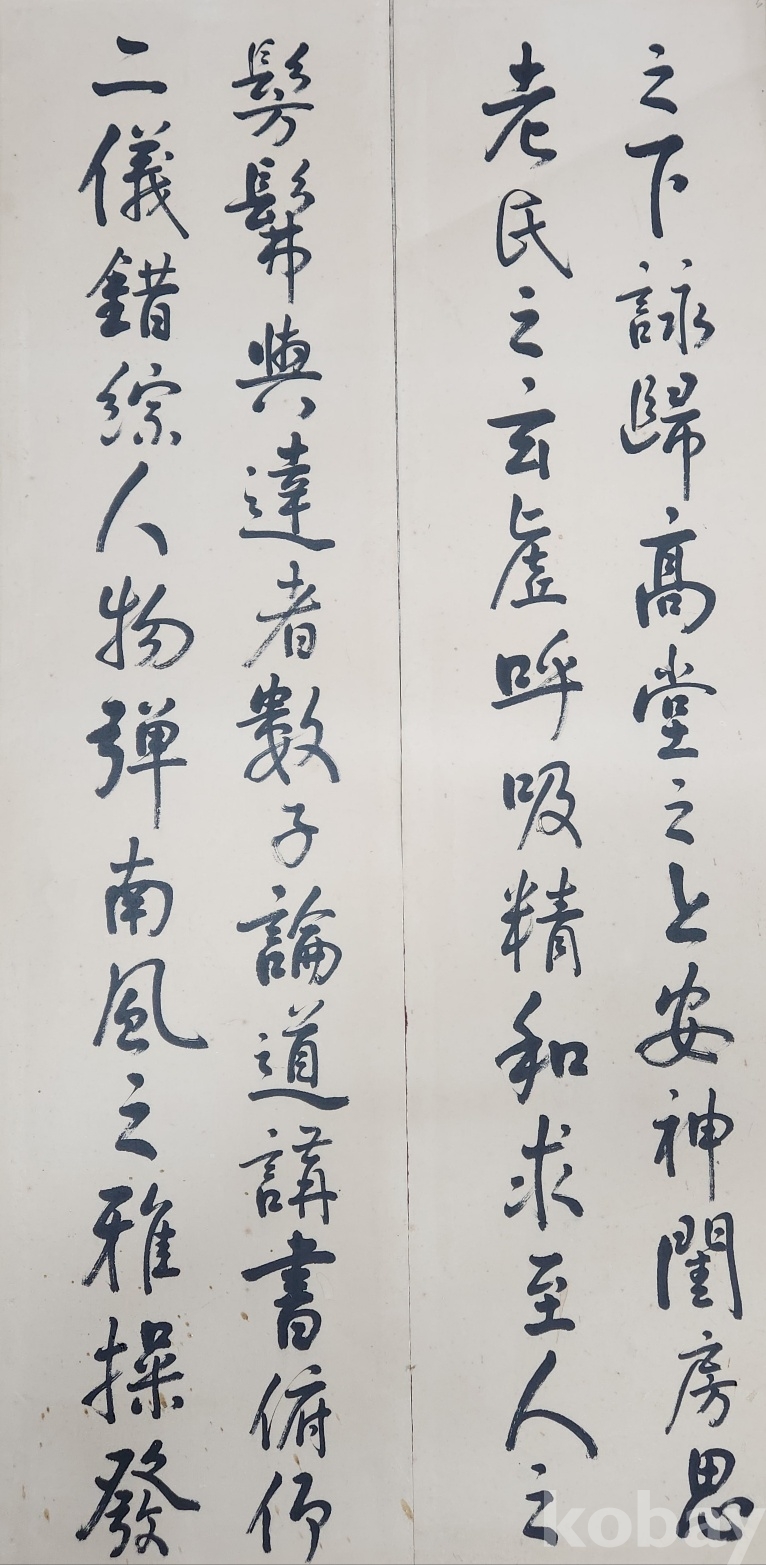 之下詠歸高堂之上安神閨房思
老氏之玄虛呼吸精和求至人之
髣髴與達者數子論道講書俯仰
二儀錯綜人物弹南風之雅操發
kobay